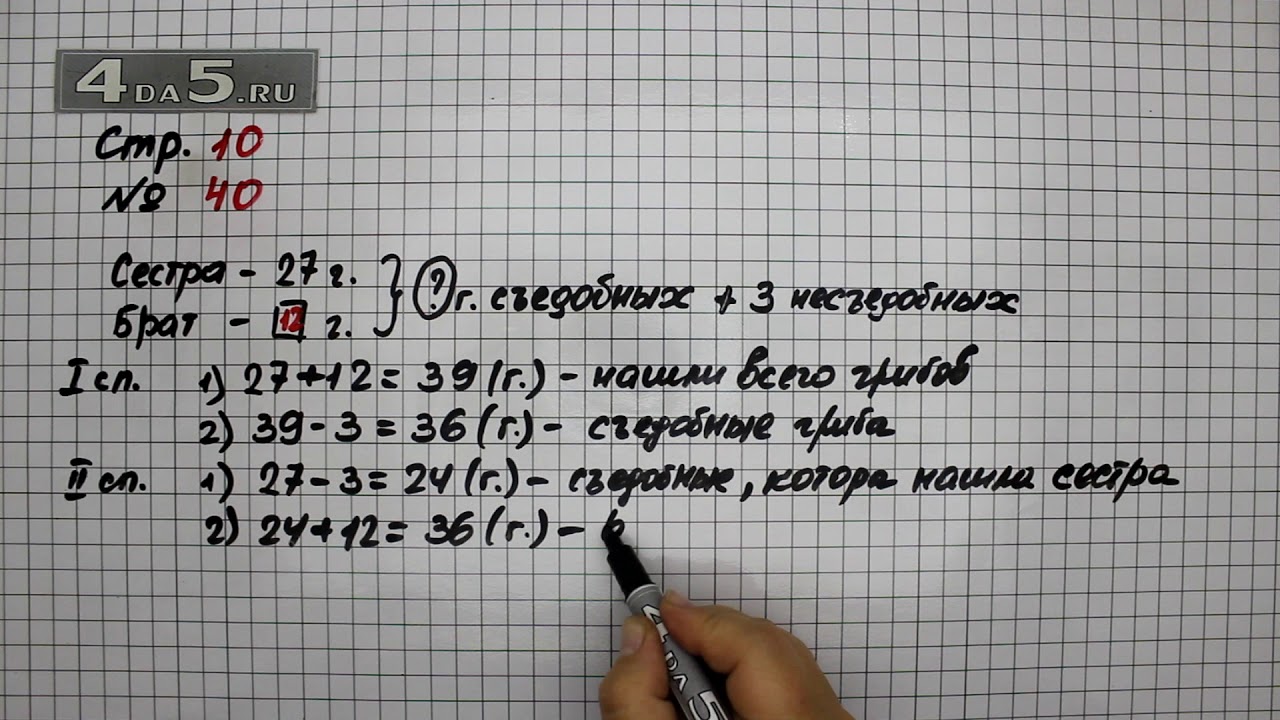 4DA5.RU
Стр. 10
№ 40
Сестра - 27 г.
Брат - 12 г.
? г. съедобных + 3 несъедобных
I сп. 1) 27+12= 39 (г.) - нашли всего грибов
2) 39-3=36 (г.) - съедобные гриба
II сп. 1) 27-3=24 (г.) - съедобные, котора нашла сестра
2) 24+12= 36 (г.) -
4DA5